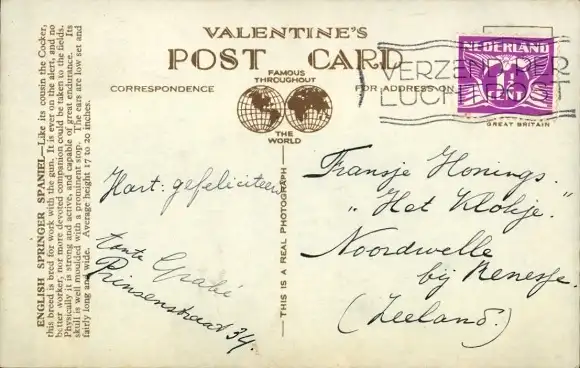 ENGLISH SPRINGER SPANIEL—Like its cousin the Cocker,
this breed is bred for work with the gun. It is ever on the alert, and no
better worker, nor more devoted companion could be taken to the fields.
Physically it is strong and active, and capable of great endurance. Its
skull is well moulded with a prominent stop. The ears are low set and
fairly long and wide. Average height 17 to 20 inches.
VALENTINE'S
POST CARD
FAMOUS
THROUGHOUT
THE
WORLD
CORRESPONDENCE
FOR ADDRESS ON
GREAT BRITAIN
NEDERLAND
7½
CENT
VERZENDT PER
LUCHTPOST
THIS IS A REAL PHOTOGRAPH
Hart: gefeliciteerd
tante
Prinsenstraat 34.
Fransje Honings.
"Het Klokje."
Noordwelle
bij Renesse.
(Zeeland.)